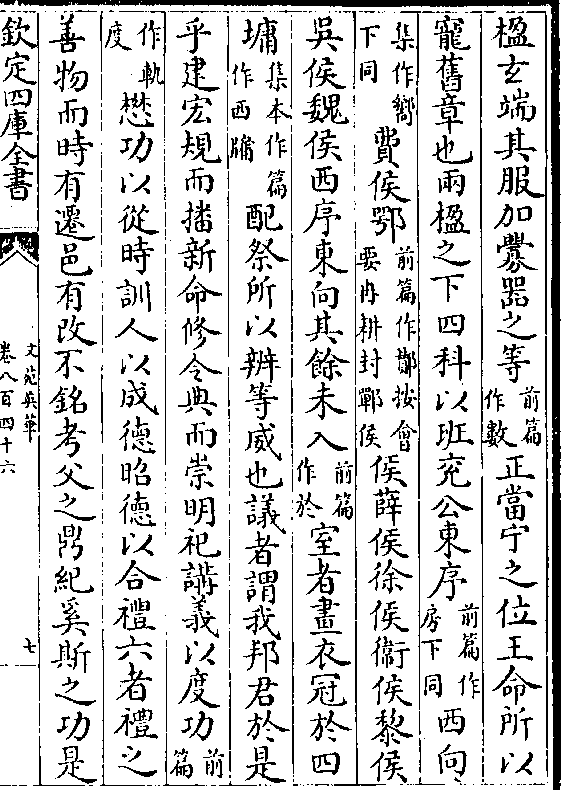 楹玄端其服加爨器之等前篇作數正當宁之位王命所以
寵舊章也兩楹之下四科以班兖公東序前篇作房下同西向
集作嚮下同費侯鄂前篇作鄪按會要冉耕封鄆侯侯薛侯徐侯衞侯黎侯
吳侯魏侯西序東向其餘未入前篇作於室者畫衣冠於四
墉集本作篇作西牖配祭所以辨等威也議者謂我邦君於是
乎建宏規而播新命修令典而崇明祀講義以度功前篇
作軌度懋功以從時訓人以成德昭德以合禮六者禮之
善物而時有遷邑有改不銘考父之鼎紀奚斯之功是
欽定四庫全書
文苑英華
卷八百四十六
七